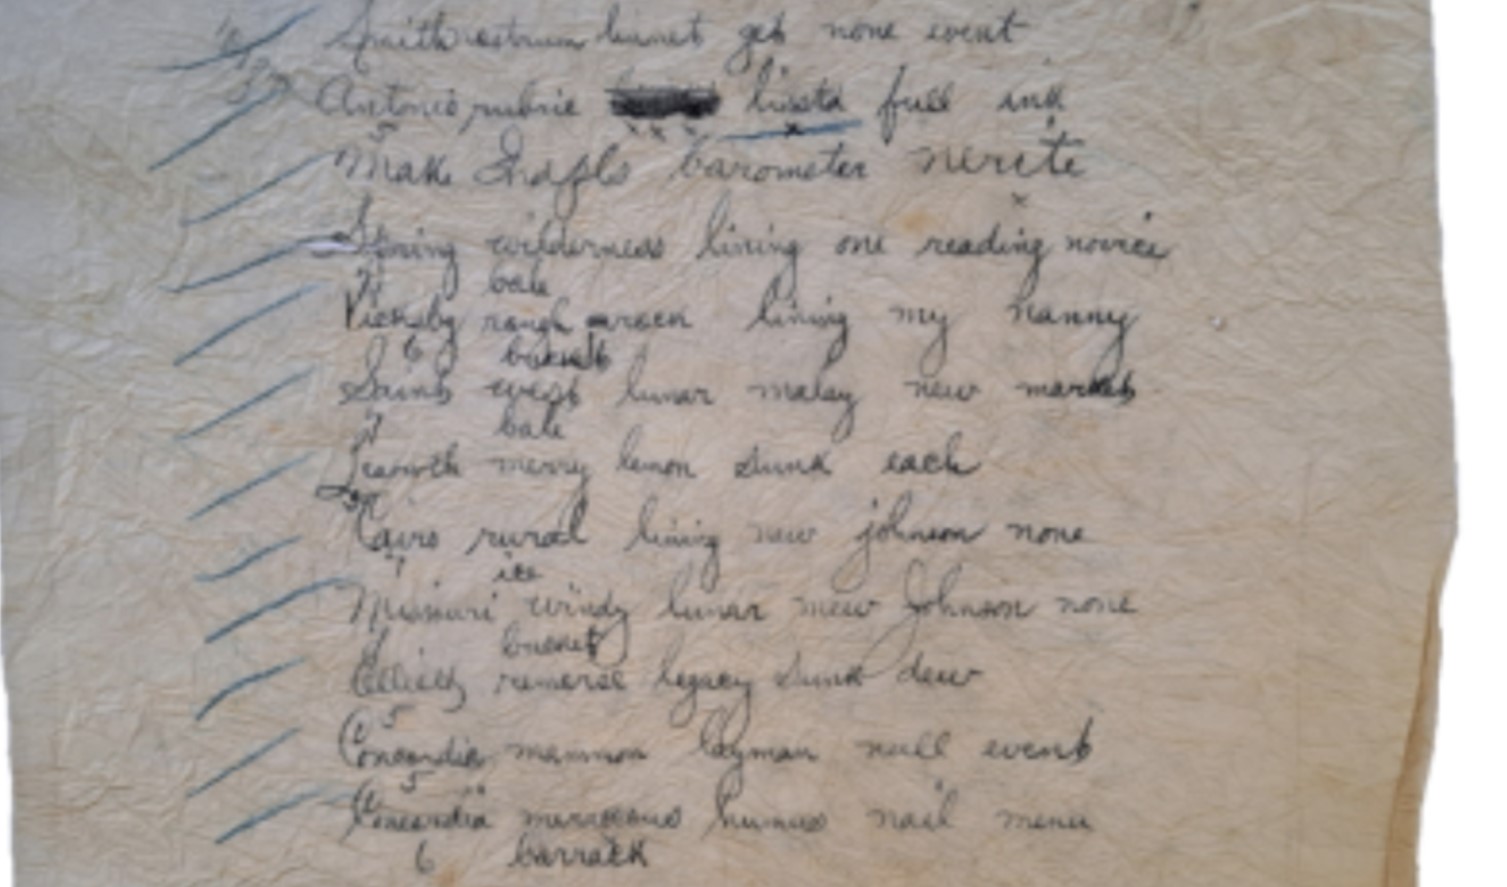 Smith nostrum linnet get none event
Antonio rubric lissta full ink
5
Make Indpls barometer nerite
Spring wilderness lining one reading novice
bale
Vicksbg rough rack lining my nanny
6 bucket
Saint west lunar malay new market
7 bale
Leavwth merry lemon sunk each
Cairo rural lining new johnson none
1 ice
Missouri windy lunar mew Johnson none
1 bucket
Elliott removal legacy sunk dew
5
Concordia mammon layman null event
5
Concordia murrous humus nail menu
6 barrack